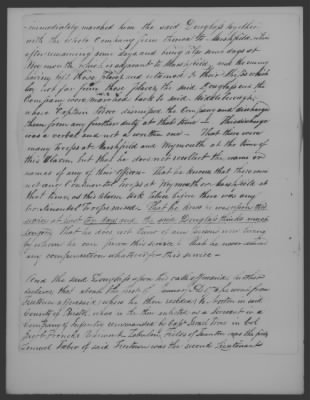 immediately marched him the said Douglass together
with the whole Company from thence to Marshfield, where
after remaining some days and being also some days at
Weymouth which is adjacent to Marshfield and the enemy
having left those places and returned to their ships which
lay not far from those places the said Douglass and the
Company were marched back to said Middleborough,
where Captain dismissed the Company and discharged
them from any further duty at that time — This discharge
was a verbal and not a written one — That there were
many troops at Marshfield and Weymouth at the time of
this Alarm but that he does not recollect the name or
names of any of their officers — That he knows that there were
not any Continental troops at Weymouth or Marshfield at
that time, as this alarm took place before there was any
Continental Troops raised — That he knows
service at least ten days and the said Douglass thinks much
longer that he does not know of any persons now living
by whom he can prove this service & that he never
any compensation whatever for this service —
And the said Douglass upon his oath aforesaid, further
declares that about the first of he went from
Freetown aforesaid where he then resided, to Norton in said
County of Bristol where he then enlisted as a Sergeant in a
Company of Infantry commanded by Capt. Israel in Col.
Jacob Francis Regiment Zebulon Fields of Taunton was the first
Lemuel of said Freetown was the second Lieutenant